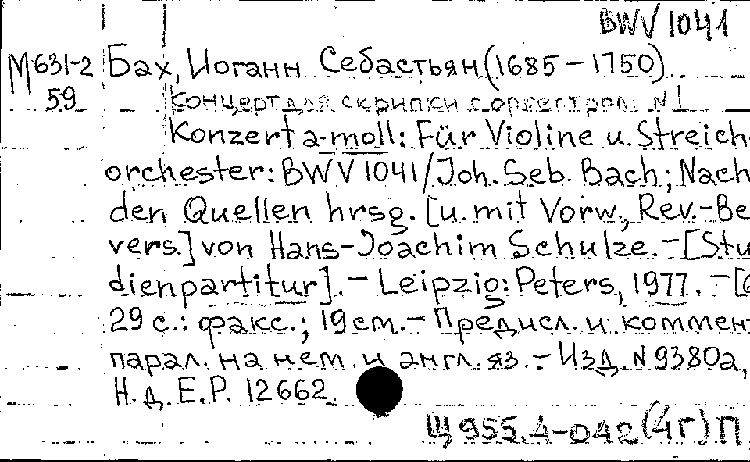 BWV 1041
М631-2 Бах, Иоганн Себастьян (1685 – 1750)
59 Концерт для скрипки с оркестром N 1
Konzert a-moll: Für Violine u. Streich-
orchester: BWV 1041/Joh. Seb. Bach; Nach
den Quellen hrsg. [u. mit Vorw., Rev.-Be
vers.] von Hans-Joachim Schulze. – [Stu
dienpartitur]. – Leipzig: Peters, 1977. – [6
29 с.: факс.; 19 см. – Предисл. и коммен
парал. на нем. и англ. яз. – Изд. N 9380a,
Н. д. E.P. 12662.
Щ 955.4-042 (4Г) П